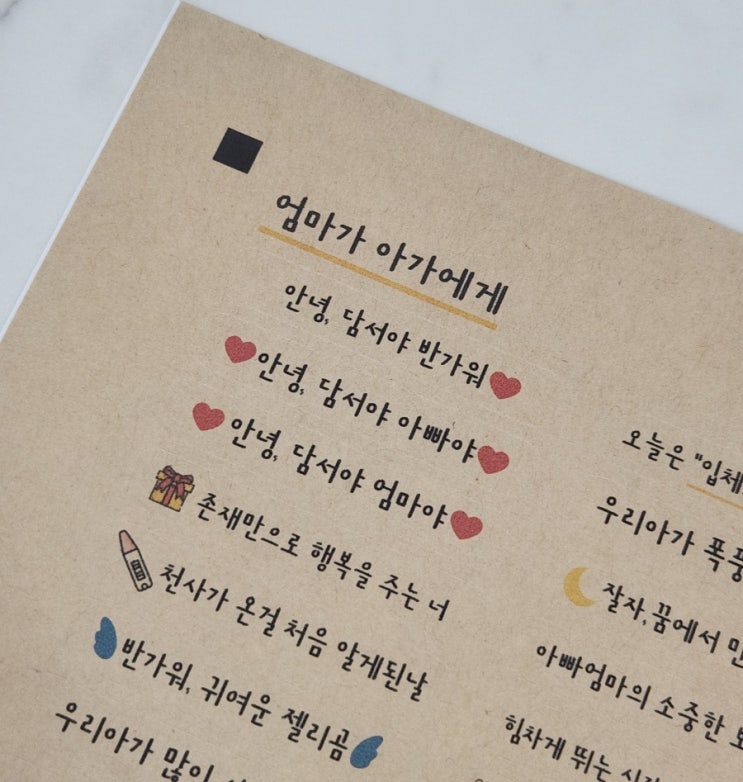 엄마가 아가에게
안녕, 담서야 반가워
안녕, 담서야 아빠야
안녕, 담서야 엄마야
존재만으로 행복을 주는 너
천사가 온걸 처음 알게된날
반가워, 귀여운 젤리곰
우리아가 많이
오늘은 "입체
우리아가 폭풍
잘자, 꿈에서 만
아빠엄마의 소중한 보
힘차게 뛰는